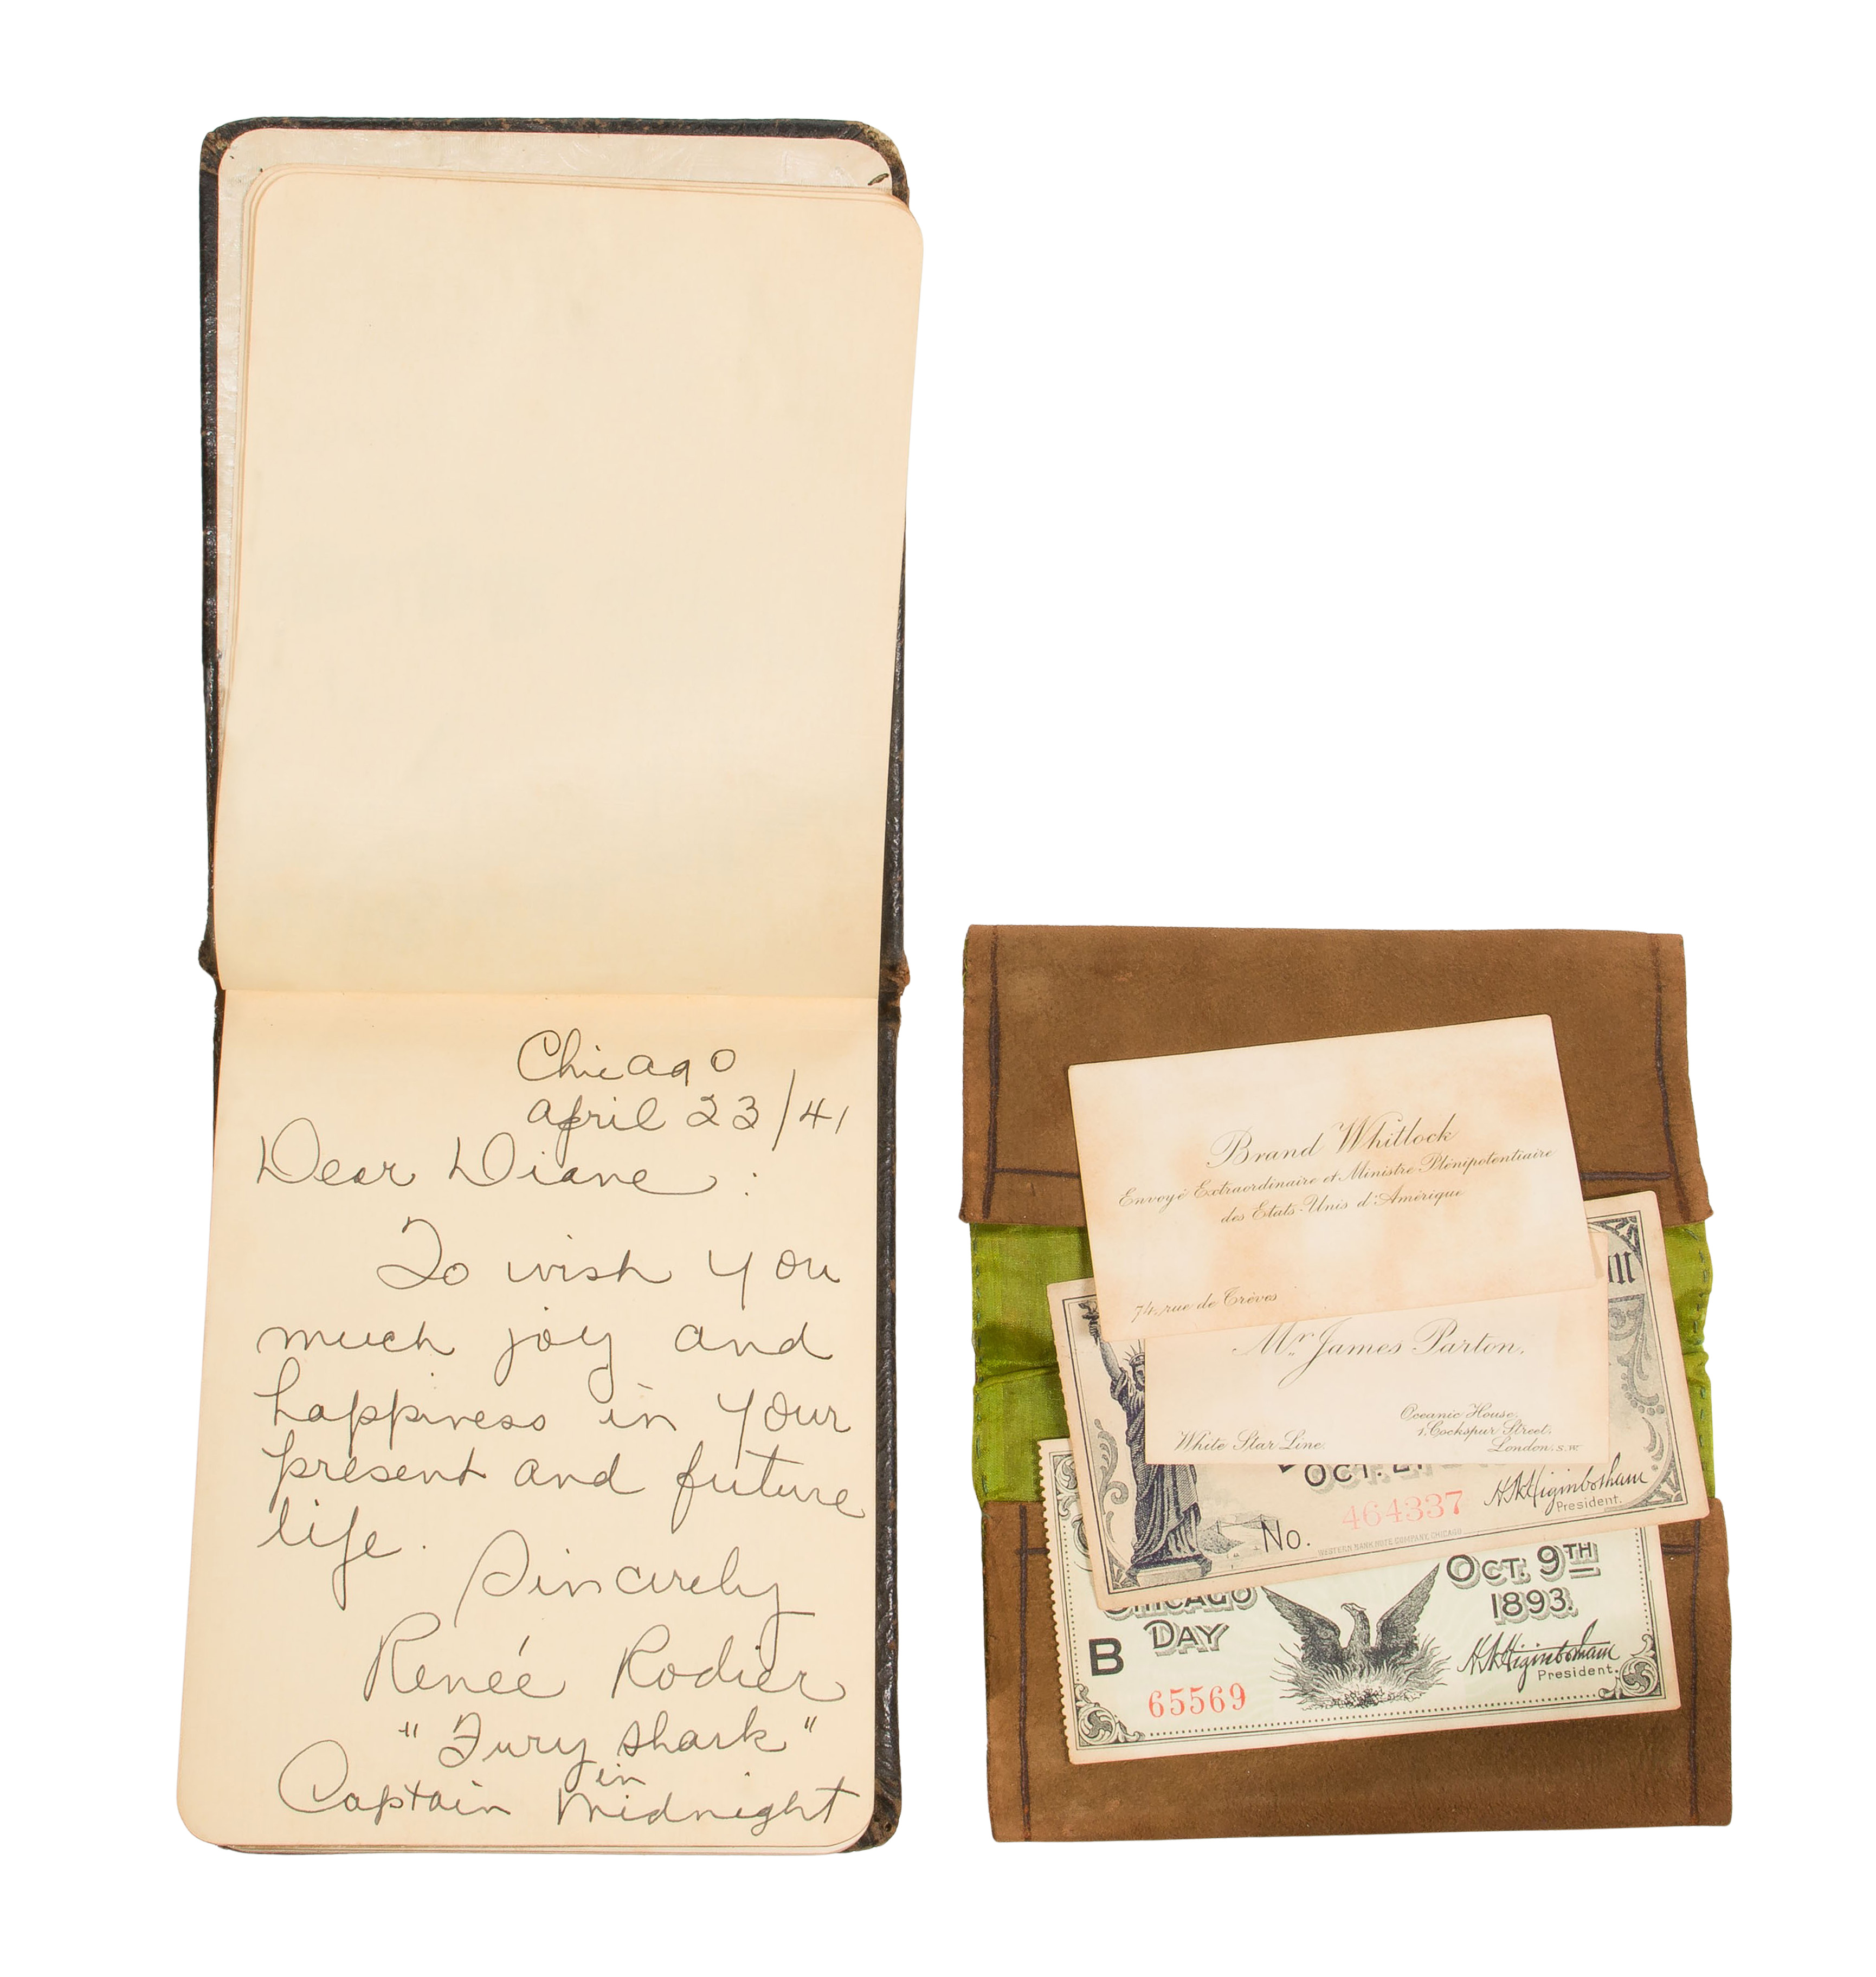 Chicago
April 23/41
Dear Diane:
To wish you
much joy and
happiness in your
present and future
life.
Sincerely
Renée Rodier
"Fury Shark"
in
Captain Midnight
Brand Whitlock
Envoyé Extraordinaire et Ministre Plénipotentiaire
des Etats-Unis d'Amérique
74, rue de Trèves
Mr. James Parton.
White Star Line.
Oceanic House,
1, Cockspur Street,
London, S.W.
OCT. 21
No. 464337
H.N. Higinbotham
President.
WESTERN BANK NOTE COMPANY, CHICAGO
CHICAGO
DAY
B
65569
OCT. 9TH
1893.
H.N. Higinbotham
President.